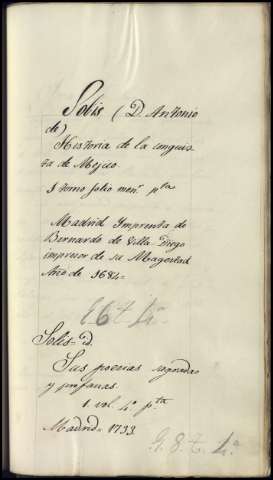 Solis (D. Antonio
de)
Historia de la conquis
ta de Mejico.
1 tomo folio men.r pta
Madrid Imprenta de
Bernardo de Villa-Diego
impresor de su Magestad
Año de 1684=
Solis= id.
Sus poesias sagradas
y profanas.
1. vol. 4.º pta
Madrid= 1733.